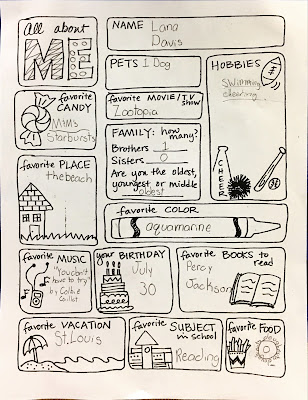 all about
ME
NAME Lana
Davis
PETS 1 Dog
HOBBIES
Swimming
cheering
CHEER
favorite
CANDY
M&Ms
Starbursts
favorite MOVIE/TV
show
Zootopia
FAMILY: how
many?
Brothers 1
Sisters 0
Are you the oldest,
youngest or middle
oldest
favorite PLACE
the beach
favorite COLOR
aquamarine
favorite MUSIC
"You don't
have to try"
by Colbie
Caillat
your BIRTHDAY
July
30
favorite BOOKS to
read
Percy
Jackson
favorite VACATION
St. Louis
favorite SUBJECT
in school
Reading
favorite FOOD